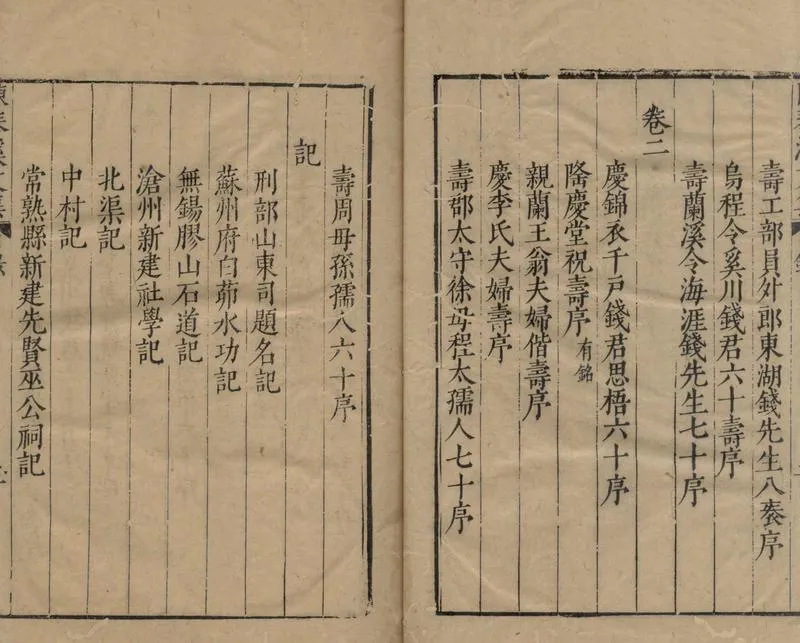 壽工部員外郎東湖錢先生八袠序
烏程令奚川錢君六十壽序
壽蘭溪令海涯錢先生七十序
卷二
慶錦衣千戸錢君思梧六十序
隆慶堂祝壽序 有銘
親蘭王翁夫婦偕壽序
慶李氏夫婦壽序
壽郡太守徐母程太孺人七十序
壽周母孫孺人六十序
記
刑部山東司題名記
蘇州府白茆水功記
無錫膠山石道記
滄州新建社學記
北渠記
中村記
常熟縣新建先賢巫公祠記